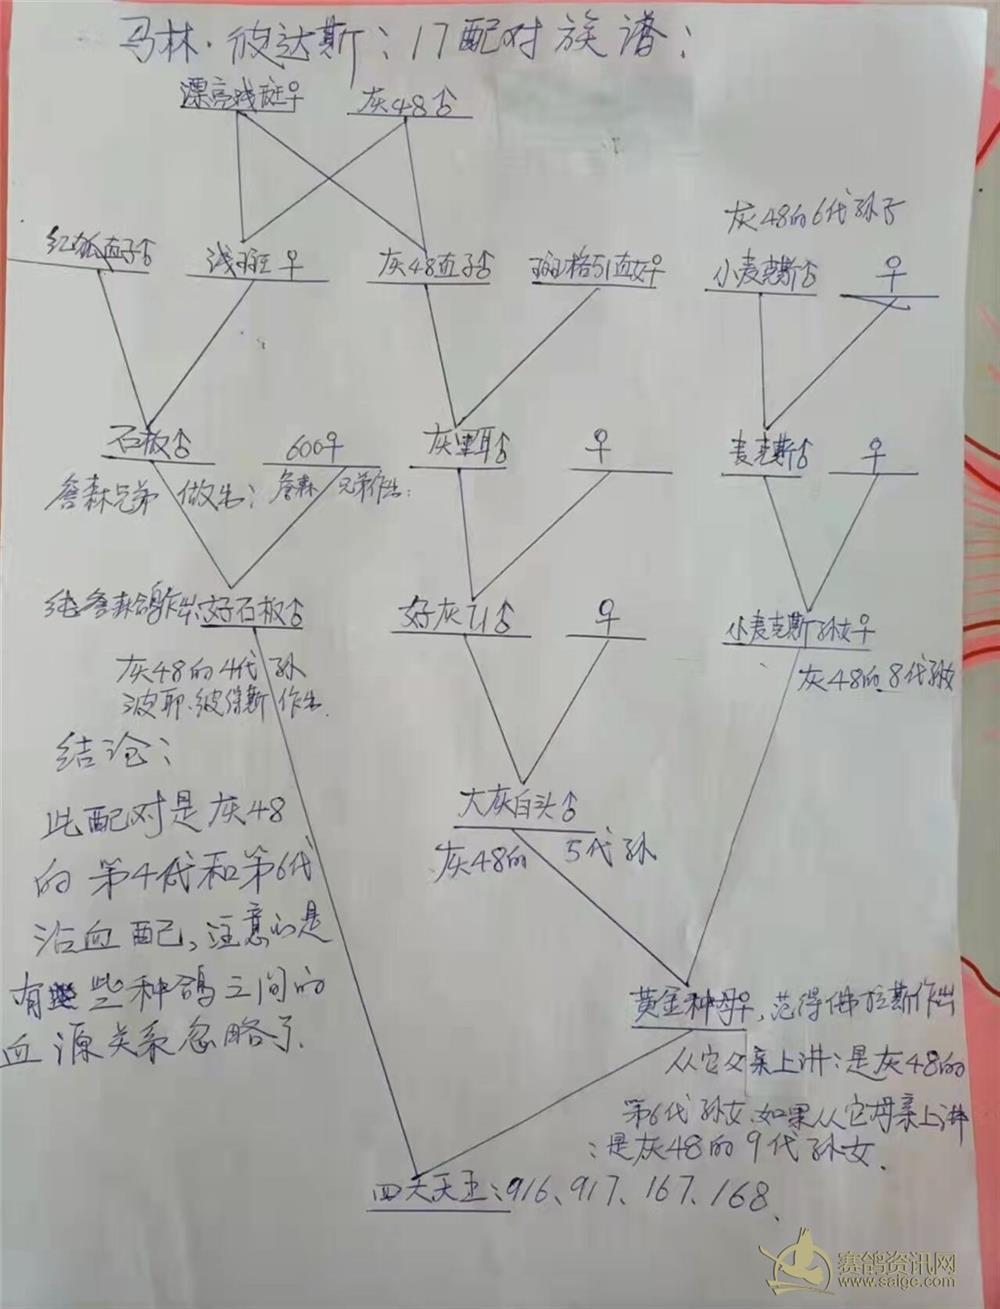 马林·彼达斯：17配对族谱：
漂亮浅斑♀ 灰48♂
灰48的6代孙子
红狐直子♂ 浅斑♀ 灰48直子♂ 斑格51直女♀ 小麦克斯♂ ♀
石板♂ 600♀ 灰里耳♂ ♀ 麦克斯♂ ♀
詹森兄弟 做出； 詹森兄弟作出；
纯詹森鸽作出：好石板♂ 好灰71♂ ♀ 小麦克斯孙女♀
灰48的4代孙
灰48的8代孙女
波耶·彼得斯作出
结论；
此配对是灰48
的第4代和第6代
沿血配、注意的是
有些种鸽之间的
血源关系忽略了.
大灰白头♂
灰48的 5代孙
黄金种母♀，范得佛拉斯作出
从它父亲上讲：是灰48的
第6代孙女、如果从它母亲上讲
：是灰48的9代孙女.
四大天王：916、917、167、168、
赛鸽资讯网
www.saigc.com